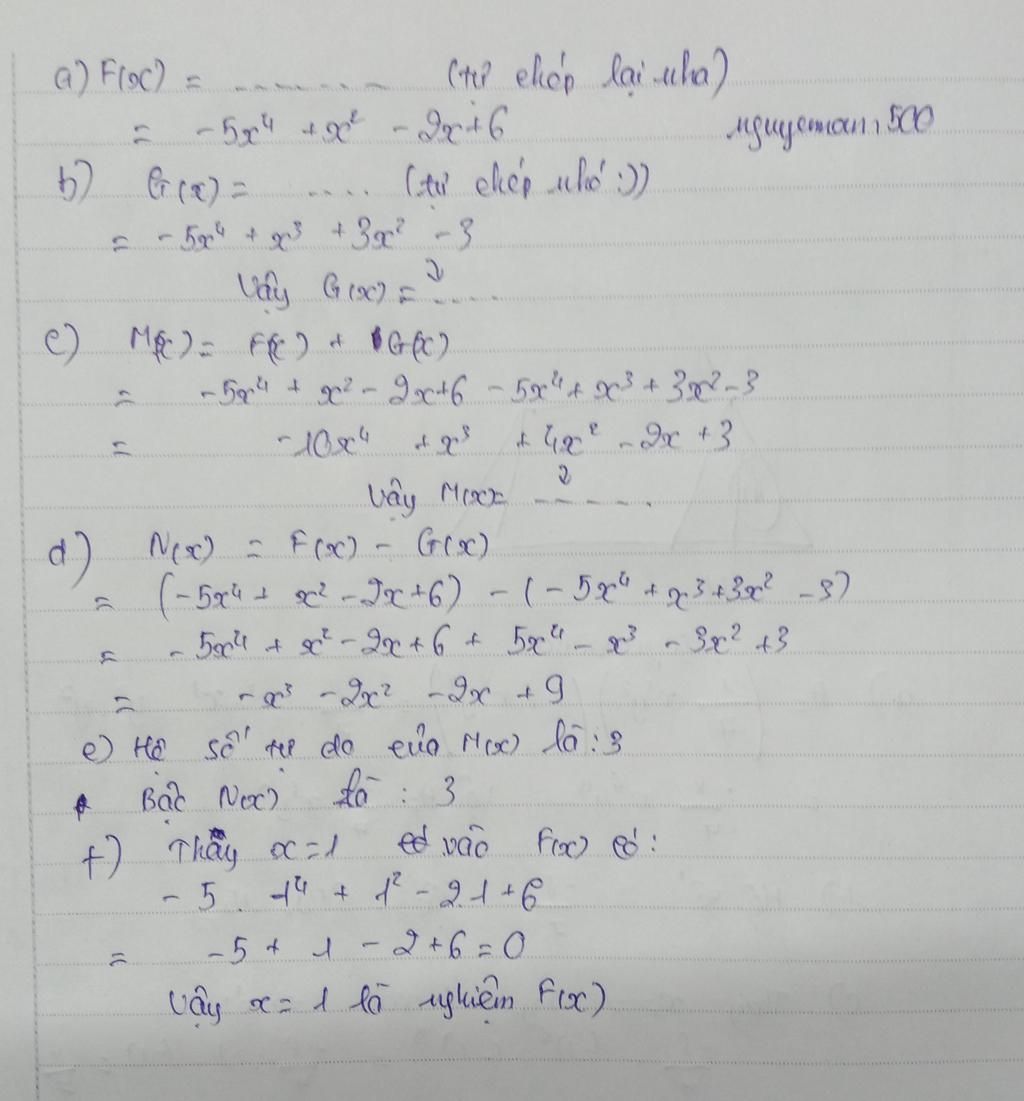 a) F(x) = ........... (tự chép lại nha)
= -5x⁴ + x² - 2x + 6 nguyeman1500
b) G(x) = ..... (tự chép nhó :))
= -5x⁴ + x³ + 3x² - 3
Vậy G(x) = .....
c) M(x) = F(x) + G(x)
= -5x⁴ + x² - 2x + 6 - 5x⁴ + x³ + 3x² - 3
= -10x⁴ + x³ + 4x² - 2x + 3
Vậy M(x) = ------.
d) N(x) = F(x) - G(x)
= (-5x⁴ + x² - 2x + 6) - (-5x⁴ + x³ + 3x² - 3)
= -5x⁴ + x² - 2x + 6 + 5x⁴ - x³ - 3x² + 3
= -x³ - 2x² - 2x + 9
e) Hệ số tự do của M(x) là : 3
Bậc N(x) là : 3
f) Thay x = 1 vào F(x) có :
-5 . 1⁴ + 1² - 2.1 + 6
= -5 + 1 - 2 + 6 = 0
Vậy x = 1 là nghiệm F(x)